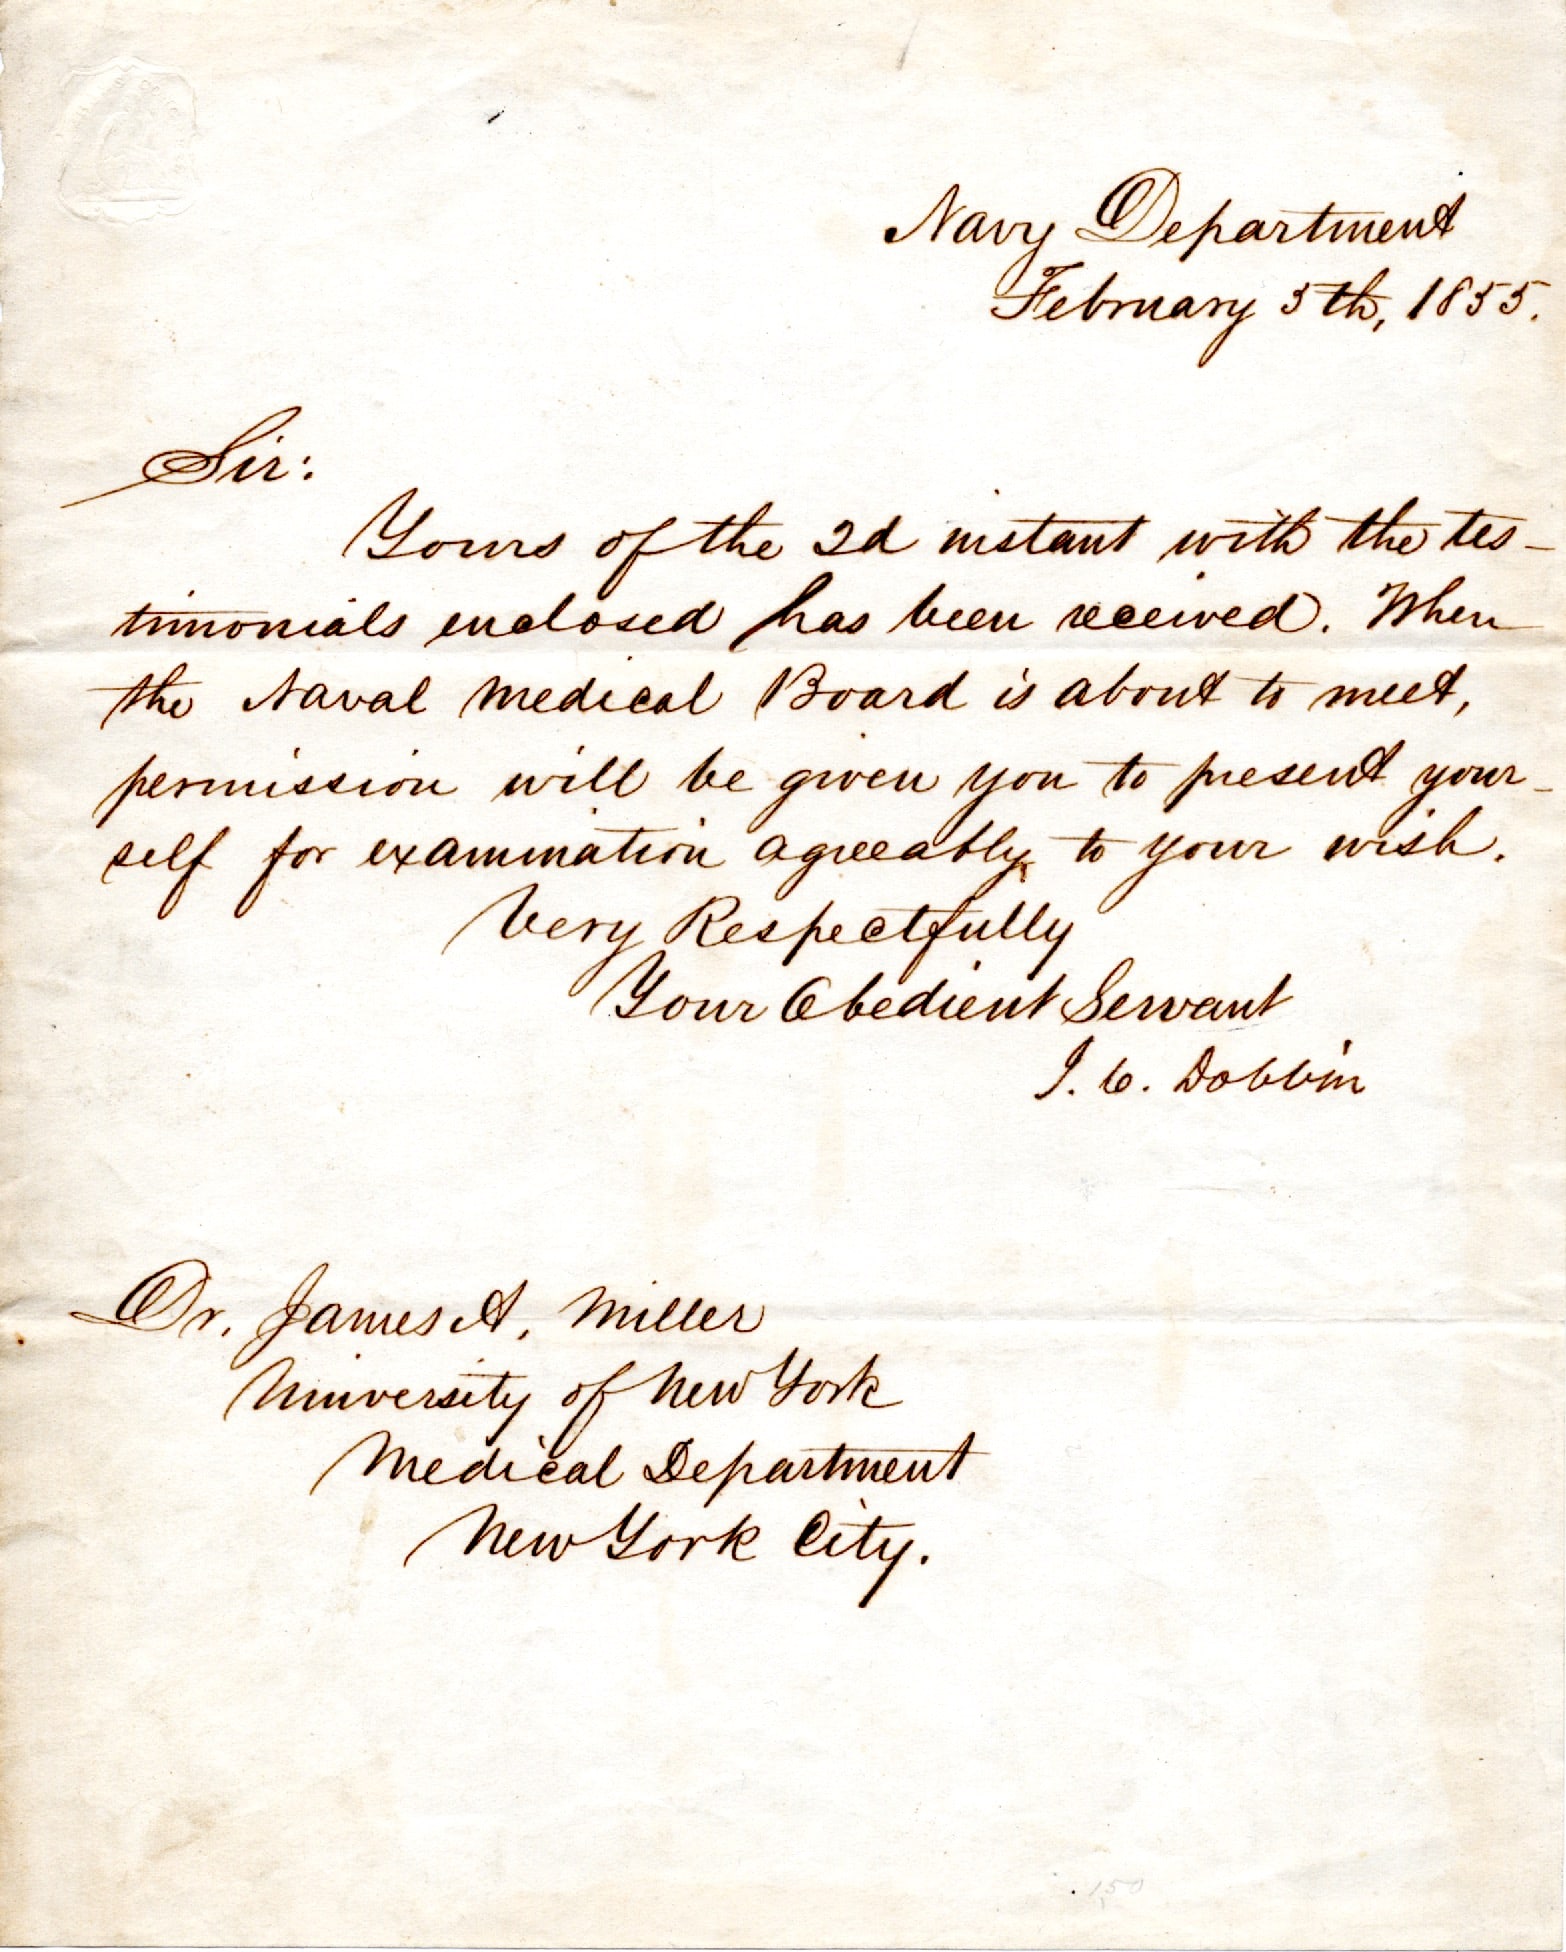 Navy Department
February 5th, 1855.
Sir:
Yours of the 2d instant with the tes-
timonials enclosed has been received. When
the Naval Medical Board is about to meet,
permission will be given you to present your-
self for examination agreeably to your wish.
Very Respectfully
Your Obedient Servant
J. C. Dobbin
Dr. James A. Miller
University of New York
Medical Department
New York City.
150